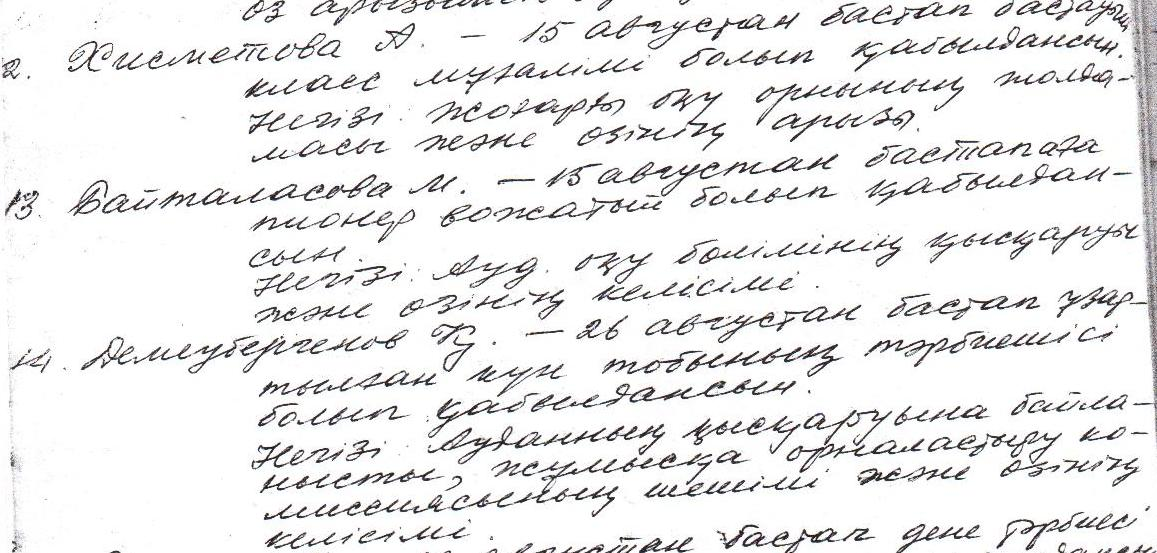 өз арызы
2. Хисметова А. – 15 августан бастап бастауыш
класс мұғалімі болып қабылдансын.
Негізі: жоғарғы оқу орнының жолда-
масы және өзінің арызы.
13. Байталасова М. – 15 августан бастап аға
пионер вожатый болып қабылдан-
сын.
Негізі: Ауд. оқу бөлімінің қысқаруы
және өзінің келісімі.
14. Демеубергенов Қ. – 26 августан бастап ұзар-
тылған күн тобының тәрбиешісі
болып қабылдансын.
Негізі: Ауданның қысқаруына байла-
нысты, жұмысқа орналастыру ко-
миссиясының шешімі және өзінің
келісімі.
бастап дене тәрбиесі